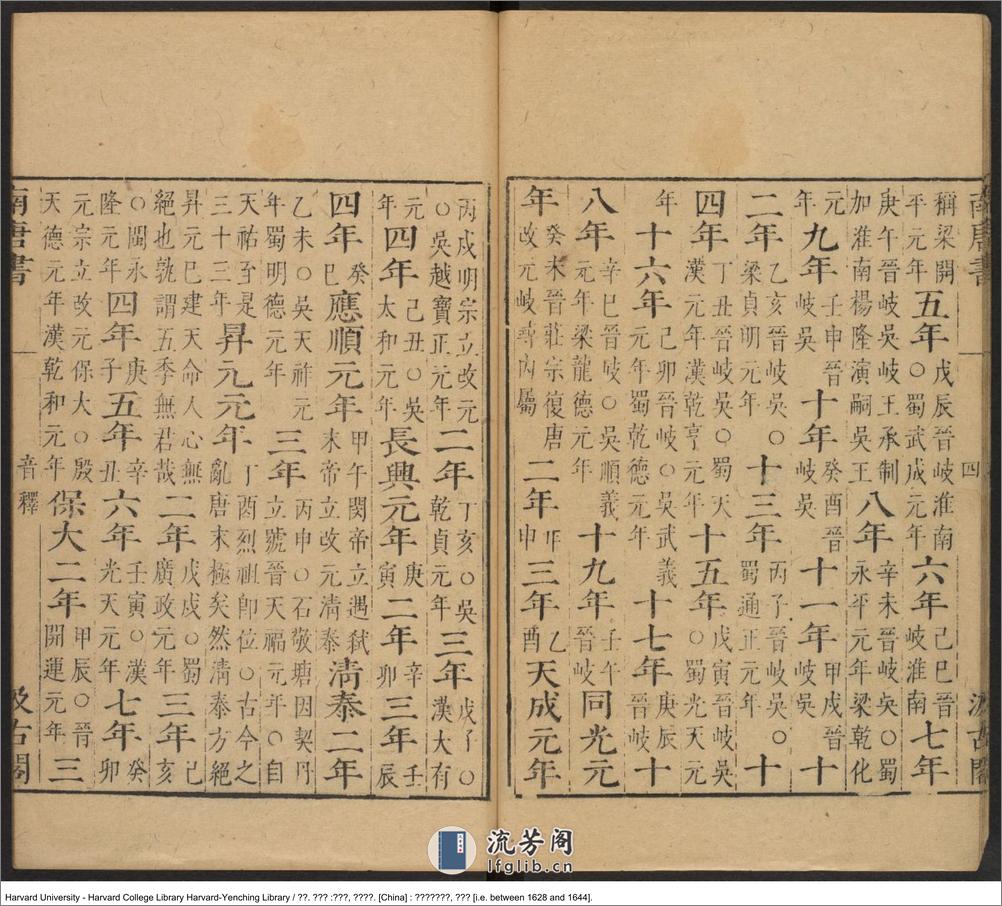 南唐書 四 汲古閣
稱梁開平元年五年戊辰晉岐淮南○蜀武成元年六年己巳晉岐淮南七年
庚午晉岐吳岐王承制加淮南楊隆演嗣吳王八年辛未晉岐吳○蜀永平元年梁乾化
元年九年壬申晉岐吳十年癸酉晉岐吳十一年甲戌晉岐吳十
二年乙亥晉岐吳○梁貞明元年十三年丙子晉岐吳○蜀通正元年十
四年丁丑晉岐吳○蜀天漢元年漢乾亨元年十五年戊寅晉岐吳○蜀光天元
年十六年己卯晉岐○吳武義元年蜀乾德元年十七年庚辰晉岐十
八年辛巳晉岐○吳順義元年梁龍德元年十九年壬午晉岐同光元
年癸未晉莊宗復唐改元岐內屬二年甲申三年乙酉天成元年
丙戌明宗立改元○吳越寶正元年二年丁亥○吳乾貞元年三年戊子○漢大有
元年四年己丑○吳太和元年長興元年庚寅二年辛卯三年壬辰
四年癸巳應順元年甲午閔帝立遇弒末帝立改元清泰淸泰二年
乙未○吳天祚元年蜀明德元年三年丙申○石敬塘因契丹立號晉天福元年○自
天祐至是三十三年昇元元年丁酉烈祖卽位○古今之亂唐末極矣然淸泰方絕
昇元已建天命人心無絕也孰謂五季無君哉二年戊戌○蜀廣政元年三年己亥
○閩永隆元年四年庚子五年辛丑六年壬寅○漢光天元年七年癸卯
元宗立改元保大○殷天德元年漢乾和元年保大二年甲辰○晉開運元年三
南唐書 音釋 汲古閣
流芳阁
lfglib.cn
Harvard University - Harvard College Library Harvard-Yenching Library / ??. ??? :???, ????. [China] : ???????, ??? [i.e. between 1628 and 1644].